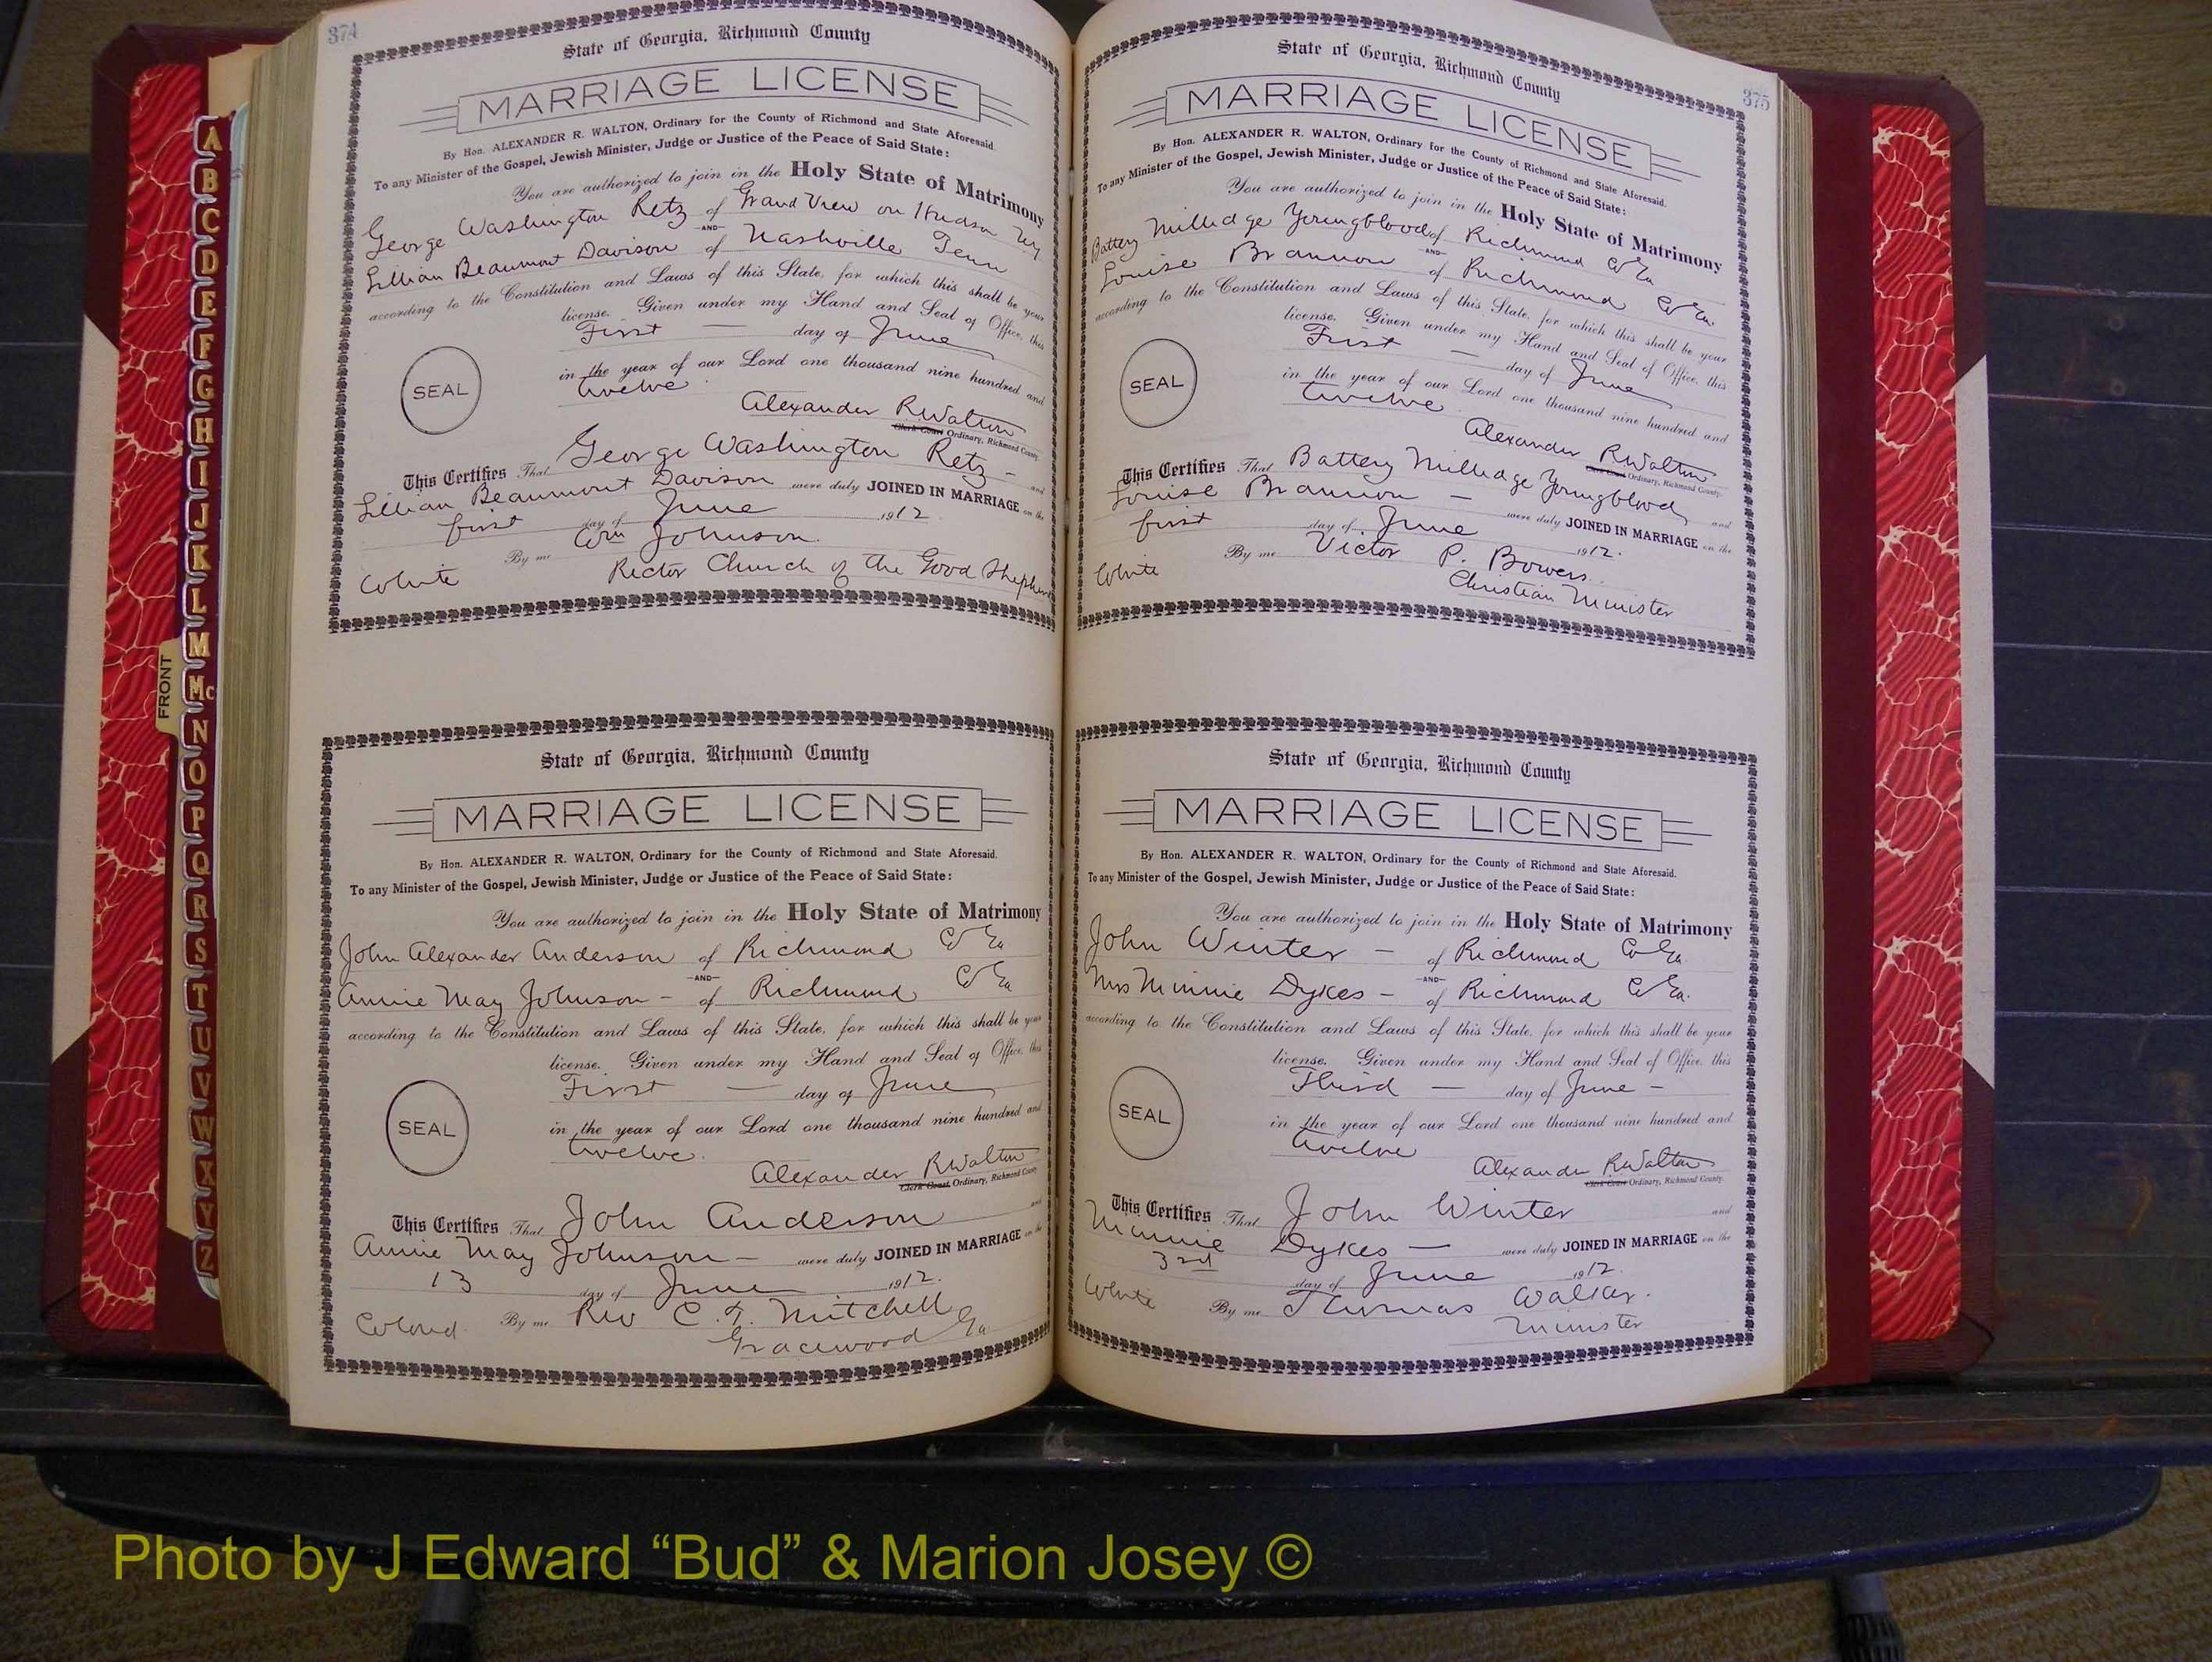 374
State of Georgia, Richmond County
MARRIAGE LICENSE
By Hon. ALEXANDER R. WALTON, Ordinary for the County of Richmond and State Aforesaid.
To any Minister of the Gospel, Jewish Minister, Judge or Justice of the Peace of Said State:
You are authorized to join in the Holy State of Matrimony
George Washington Retz of Grand View on Hudson Ny
AND
Lillian Beaumont Davison of Nashville Tenn
according to the Constitution and Laws of this State, for which this shall be your
license. Given under my Hand and Seal of Office, this
First — day of June
in the year of our Lord one thousand nine hundred and
twelve.
SEAL
Alexander R Walton
Clerk Court Ordinary, Richmond County
This Certifies That George Washington Retz - and
Lillian Beaumont Davison were duly JOINED IN MARRIAGE on the
first day of June 1912
By me Wm Johnson.
White Rector Church of the Good Shepherd
State of Georgia, Richmond County
MARRIAGE LICENSE
By Hon. ALEXANDER R. WALTON, Ordinary for the County of Richmond and State Aforesaid.
To any Minister of the Gospel, Jewish Minister, Judge or Justice of the Peace of Said State:
You are authorized to join in the Holy State of Matrimony
John Alexander Anderson of Richmond Co Ga
AND
Annie May Johnson - of Richmond Co Ga
according to the Constitution and Laws of this State, for which this shall be your
license. Given under my Hand and Seal of Office, this
First — day of June
in the year of our Lord one thousand nine hundred and
twelve.
SEAL
Alexander R Walton
Clerk Court Ordinary, Richmond County
This Certifies That John Anderson and
Annie May Johnson — were duly JOINED IN MARRIAGE on the
13 day of June 1912.
Colored. By me Rev C. T. Mitchell
Gracewood Ga
375
State of Georgia, Richmond County
MARRIAGE LICENSE
By Hon. ALEXANDER R. WALTON, Ordinary for the County of Richmond and State Aforesaid.
To any Minister of the Gospel, Jewish Minister, Judge or Justice of the Peace of Said State:
You are authorized to join in the Holy State of Matrimony
Battery Milledge Youngblood of Richmond Co Ga
AND
Louise Brannon of Richmond Co Ga.
according to the Constitution and Laws of this State, for which this shall be your
license. Given under my Hand and Seal of Office, this
First — day of June
in the year of our Lord one thousand nine hundred and
twelve.
SEAL
Alexander R Walton
Clerk Court Ordinary, Richmond County.
This Certifies That Battery Milledge Youngblood and
Louise Brannon — were duly JOINED IN MARRIAGE on the
first day of June 1912.
By me Victor P. Bowers.
White Christian Minister
State of Georgia, Richmond County
MARRIAGE LICENSE
By Hon. ALEXANDER R. WALTON, Ordinary for the County of Richmond and State Aforesaid.
To any Minister of the Gospel, Jewish Minister, Judge or Justice of the Peace of Said State:
You are authorized to join in the Holy State of Matrimony
John Winter - of Richmond Co Ga.
AND
Mrs Minnie Dykes - of Richmond Co Ga.
according to the Constitution and Laws of this State, for which this shall be your
license. Given under my Hand and Seal of Office, this
Third — day of June -
in the year of our Lord one thousand nine hundred and
twelve
SEAL
Alexander R Walton
Clerk Court Ordinary, Richmond County.
This Certifies That John Winter and
Minnie Dykes — were duly JOINED IN MARRIAGE on the
3rd day of June 1912.
White By me Thomas Walker.
Minister
FRONT
A
B
C
D
E
F
G
H
I
J
K
L
M
Mc
N
O
P
Q
R
S
T
U
V
W
X
Y
Z
Photo by J Edward “Bud” & Marion Josey ©